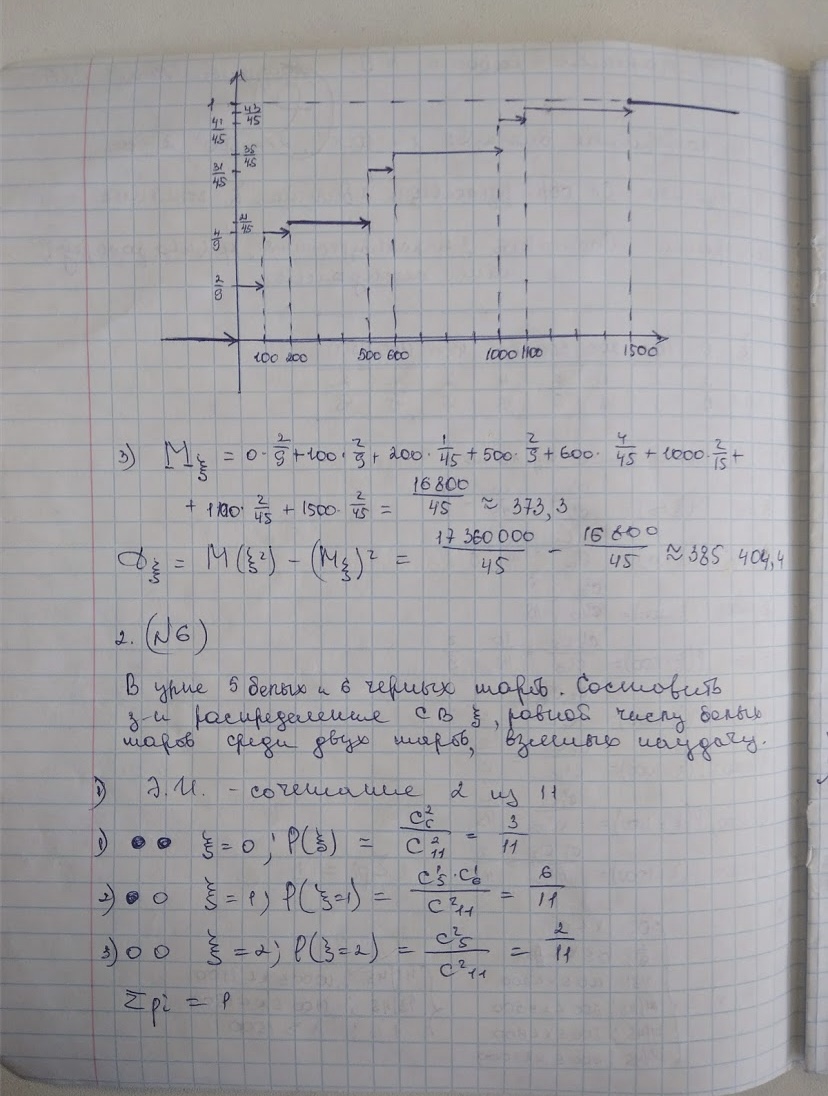 1
43/45
41/45
35/45
31/45
21/45
4/9
2/9
100 200 500 600 1000 1100 1500
3) Mξ = 0·2/9 + 100·2/9 + 200·1/45 + 500·2/9 + 600·4/45 + 1000·2/15 +
+ 1100·2/45 + 1500·2/45 = 16800/45 ≈ 373,3
Dξ = M(ξ²) − (Mξ)² = 17360000/45 − 16800/45 ≈ 385 404,4
2. (№6)
В урне 5 белых и 6 черных шаров. Составить
з-н распределение СВ ξ, равной числу белых
шаров среди двух шаров, взятых наудачу.
1) Э.И. - сочетание 2 из 11
1) ξ = 0; P(ξ) = C²₆/C²₁₁ = 3/11
2) ξ = 1; P(ξ=1) = C¹₅·C¹₆/C²₁₁ = 6/11
3) ξ = 2; P(ξ=2) = C²₅/C²₁₁ = 2/11
Σpi = 1